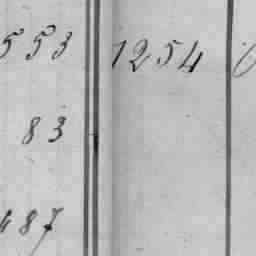 553 1254
83
487